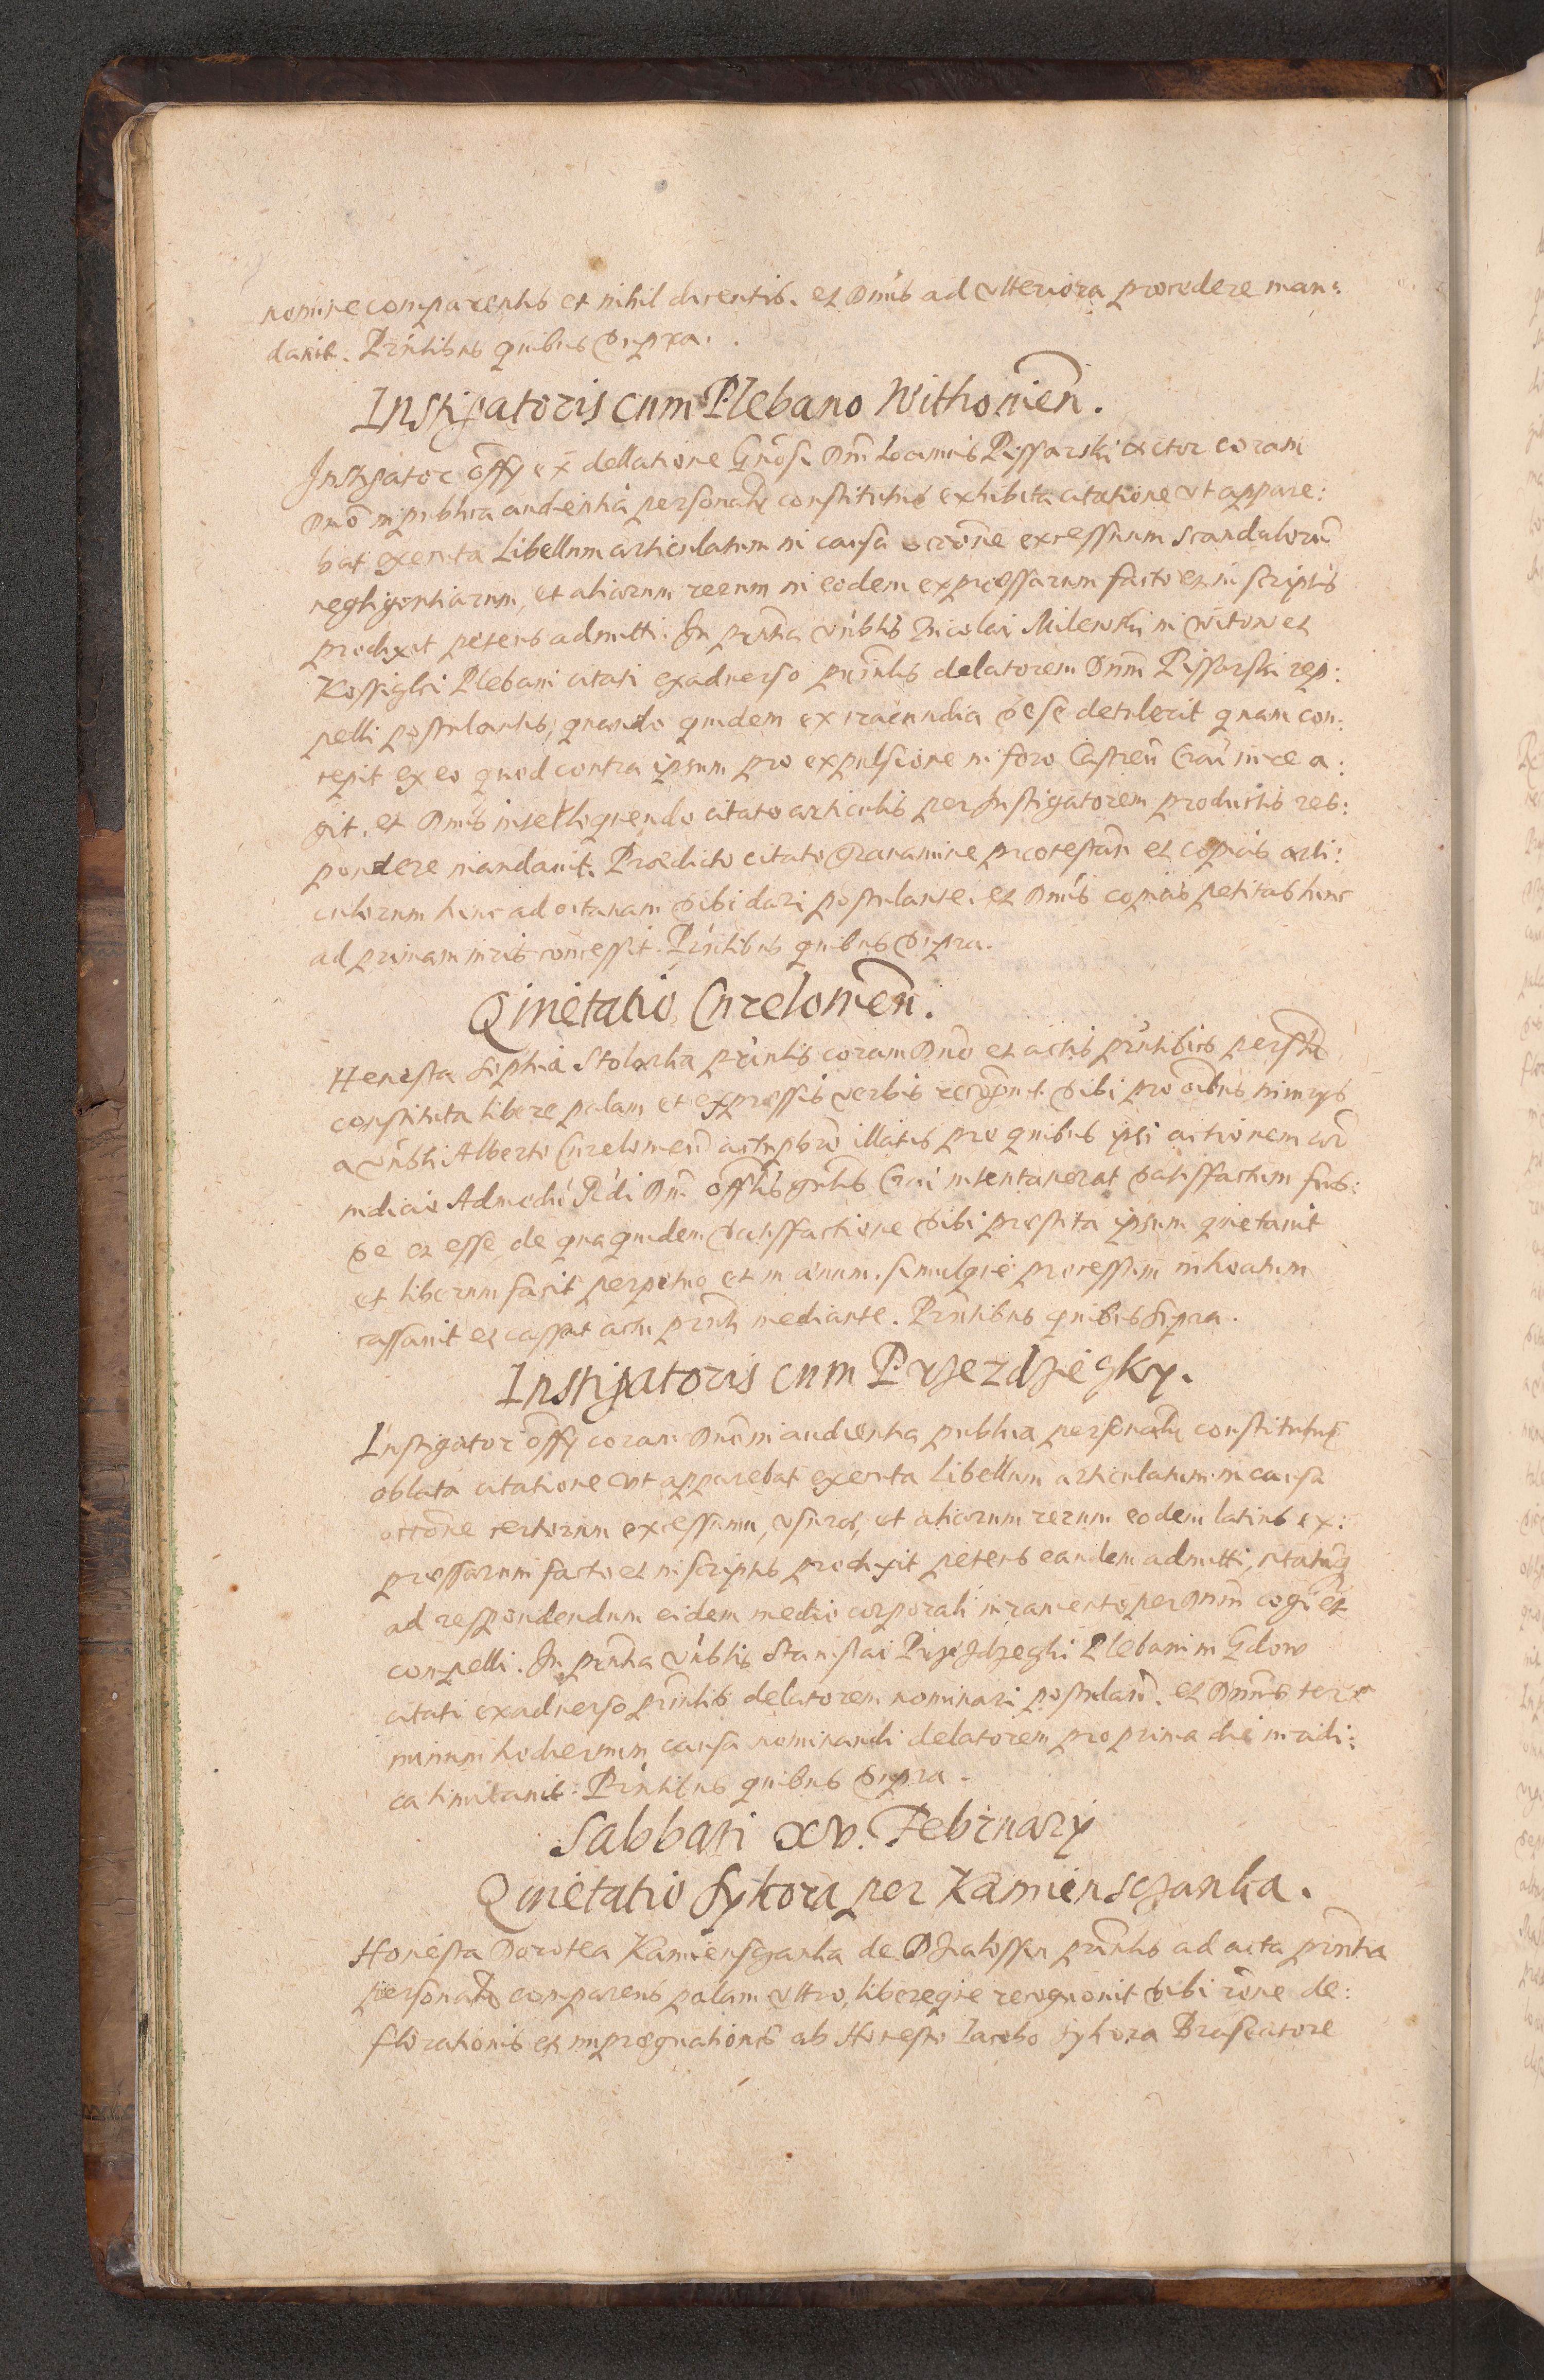 nomine comparentis et nihil dicentis. et Dnūs ad ulteriora procedere man:
davit. Pŕntibus quibus supra.
Instigatoris cum Plebano Withovien̄.
Instigator offy ex dellatione Gn̄osi Dn̄i Joannis Pissarski actor coram
Dn̄o in publica audientia personalr̄ constitutus exhibita citatione ut appare:
bat executa Libellum articulatum in causa occōne excessuum scandalorū
negligentiarum, et aliarum rerum in eodem expressarum facto et in scriptis
produxit petens admitti. In pn̄tia Vn̄blis Nicolai Milewski in Witow et
Plebani citati ex adverso pn̄tis delatorem Dnm̄ Pissarski rep:
pelli postulantis, quando quidem ex iracundia se se detulerit quam con:
cepit ex eo quod contra ipsum pro expulsione in foro Castren̄ Crac̄ iure a:
git. et Dnūs interloquendo citato articulis per Instigatorem productis res:
pondere mandavit. Prædicto citato gravamine protestan̄ et copias arti:
culorum hinc ad octavam sibi dari postulante. et Dnūs copias petitas hinc
ad primam iuris concessit. Pŕntibus quibus supra.
Quietatio Curelovien̄.
Honesta Sophia Stolarka pn̄tis coram Dn̄o et actis pn̄tibus persalr̄
constituta libere palam et expressis verbis recogn̄t sibi pro oībus iniurys
a Vn̄bli Alberto Curelovien̄ illatis pro quibus ipsi actionem cor̄
iudicio Admodū Rn̄di Dn̄i offlis gn̄lis Crac̄ intentaverat satisfactum fuis:
se et esse de qua quidem satisfactione sibi præstita ipsum quietavit
et liberum facit perpetuo et in ævum. simulque processum inhoatum
cassavit et cassat actu pn̄ti mediante. Pŕntibus quibus supra.
Instigatoris cum Przezdzięcky.
Instigator offy coram Dn̄o in audientia publica personalr̄ constitutus
oblata citatione ut apparebat executa Libellum articulatum in causa
occōne certorum excessuum, usuræ, et aliarum rerum eodem latius ex:
pressarum facto et in scriptis produxit petens eandem admitti, citatūq
ad respondendum eidem medio corporali iuramento per Dnm̄ cogi et
compelli. In pn̄tia Vn̄blis Stanislai Plebani in Gdow
citati ex adverso pn̄tis delatorem nominari postulan̄. et Dnūs ter:
minum hodiernum causa nominandi delatorem pro prima die iuridi:
ca limitavit. Pŕntibus quibus supra.
Sabbati xv. Februarÿ
Quietatio Sykora per Kamienszanka.
Honesta Dorotea Kamienszanka de pn̄tis ad acta pn̄tia
personalr̄ comparens palam ultro, libereque recognovit sibi rōne de:
florationis et impregnationis ab Honesto Iacobo Sykora Braseatore